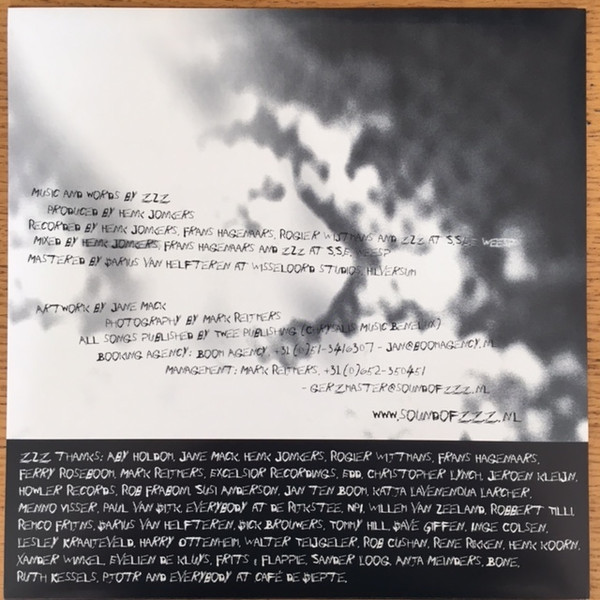 MUSIC AND WORDS BY ZZZ
PRODUCED BY HENK JONKERS
RECORDED BY HENK JONKERS, FRANS HAGENAARS, ROGIER WIJTMANS AND ZZZ AT S.S.E, WEESP
MIXED BY HENK JONKERS, FRANS HAGENAARS AND ZZZ AT S.S.E, WEESP
MASTERED BY DARIUS VAN HELFTEREN AT WISSELOORD STUDIOS, HILVERSUM
ARTWORK BY JANE MACK
PHOTOGRAPHY BY MARK REITMERS
ALL SONGS PUBLISHED BY TWEE PUBLISHING (CHRYSALIS MUSIC BENELUX)
BOOKING AGENCY: BOOM AGENCY, +31(0)51-3416307 - JAN@BOOMAGENCY.NL
MANAGEMENT: MARK REITMERS, +31(0)652-350451
- GERZMASTER@SOUNDOFZZZ.NL
WWW.SOUNDOFZZZ.NL
ZZZ THANKS: ABY HOLDOM, JANE MACK, HENK JONKERS, ROGIER WIJTMANS, FRANS HAGENAARS,
FERRY ROSEBOOM, MARK REITMERS, EXCELSIOR RECORDINGS, EDD, CHRISTOPHER LYNCH, JEROEN KLEIJN,
HOWLER RECORDS, ROB FRABOM, SUSI ANDERSON, JAN TEN BOOM, KATJA LARCHER,
MENNO VISSER, PAUL VAN DIJK, EVERYBODY AT DE RIJKSTEE, NPI, WILLEM VAN ZEELAND, ROBBERT TILLI,
REMCO FRITNS, DARIUS VAN HELFTEREN, DICK BROUWERS, TOMMY HILL, DAVE GIFFEN, INGE COLSEN,
LESLEY KRAAITEVELD, HARRY OTTENHEIM, WALTER TEIJGELER, ROB CUSHAN, RENE RIKKEN, HENK KOORN,
XANDER WINKEL, EVELIEN DE KLUYS, FRITS I FLAPPIE, SANDER LOOG, ANJA MEINDERS, BONE,
RUTH KESSELS, PJOTR AND EVERYBODY AT CAFÉ DE DIEPTE.